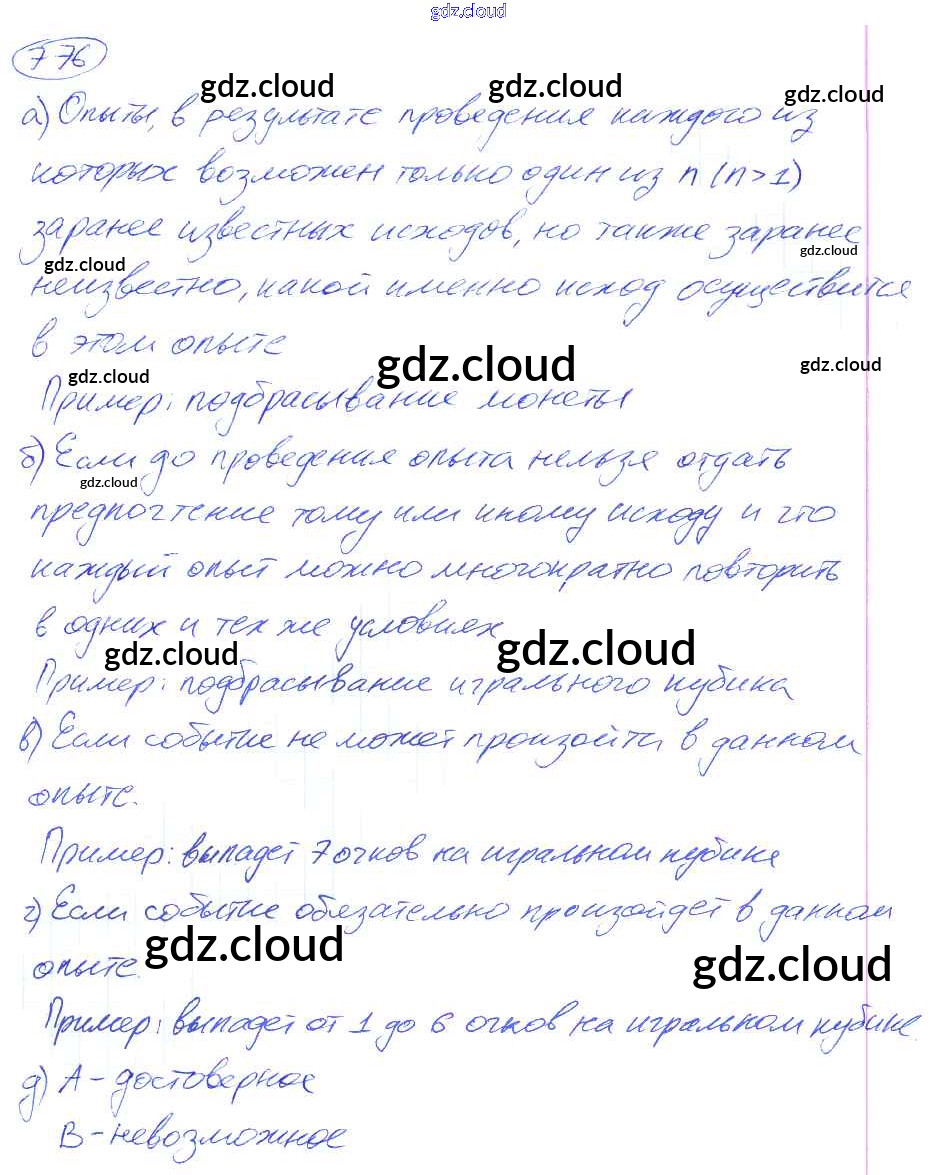 gdz.cloud
776
gdz.cloud gdz.cloud gdz.cloud
а) Опыты, в результате проведения каждого из
которых возможен только один из n (n>1)
заранее известных исходов, но также заранее
gdz.cloud gdz.cloud
неизвестно, какой именно исход осуществится
в этом опыте
gdz.cloud gdz.cloud gdz.cloud
Пример: подбрасывание монеты
б) Если до проведения опыта нельзя отдать
gdz.cloud
предпочтение тому или иному исходу и что
каждый опыт можно многократно повторить
в одних и тех же условиях
gdz.cloud gdz.cloud
Пример: подбрасывание игрального кубика
в) Если событие не может произойти в данном
опыте.
Пример: выпадет 7 очков на игральном кубике
г) Если событие обязательно произойдет в данном
gdz.cloud gdz.cloud
опыте.
Пример: выпадет от 1 до 6 очков на игральном кубике.
д) А - достоверное
В - невозможное